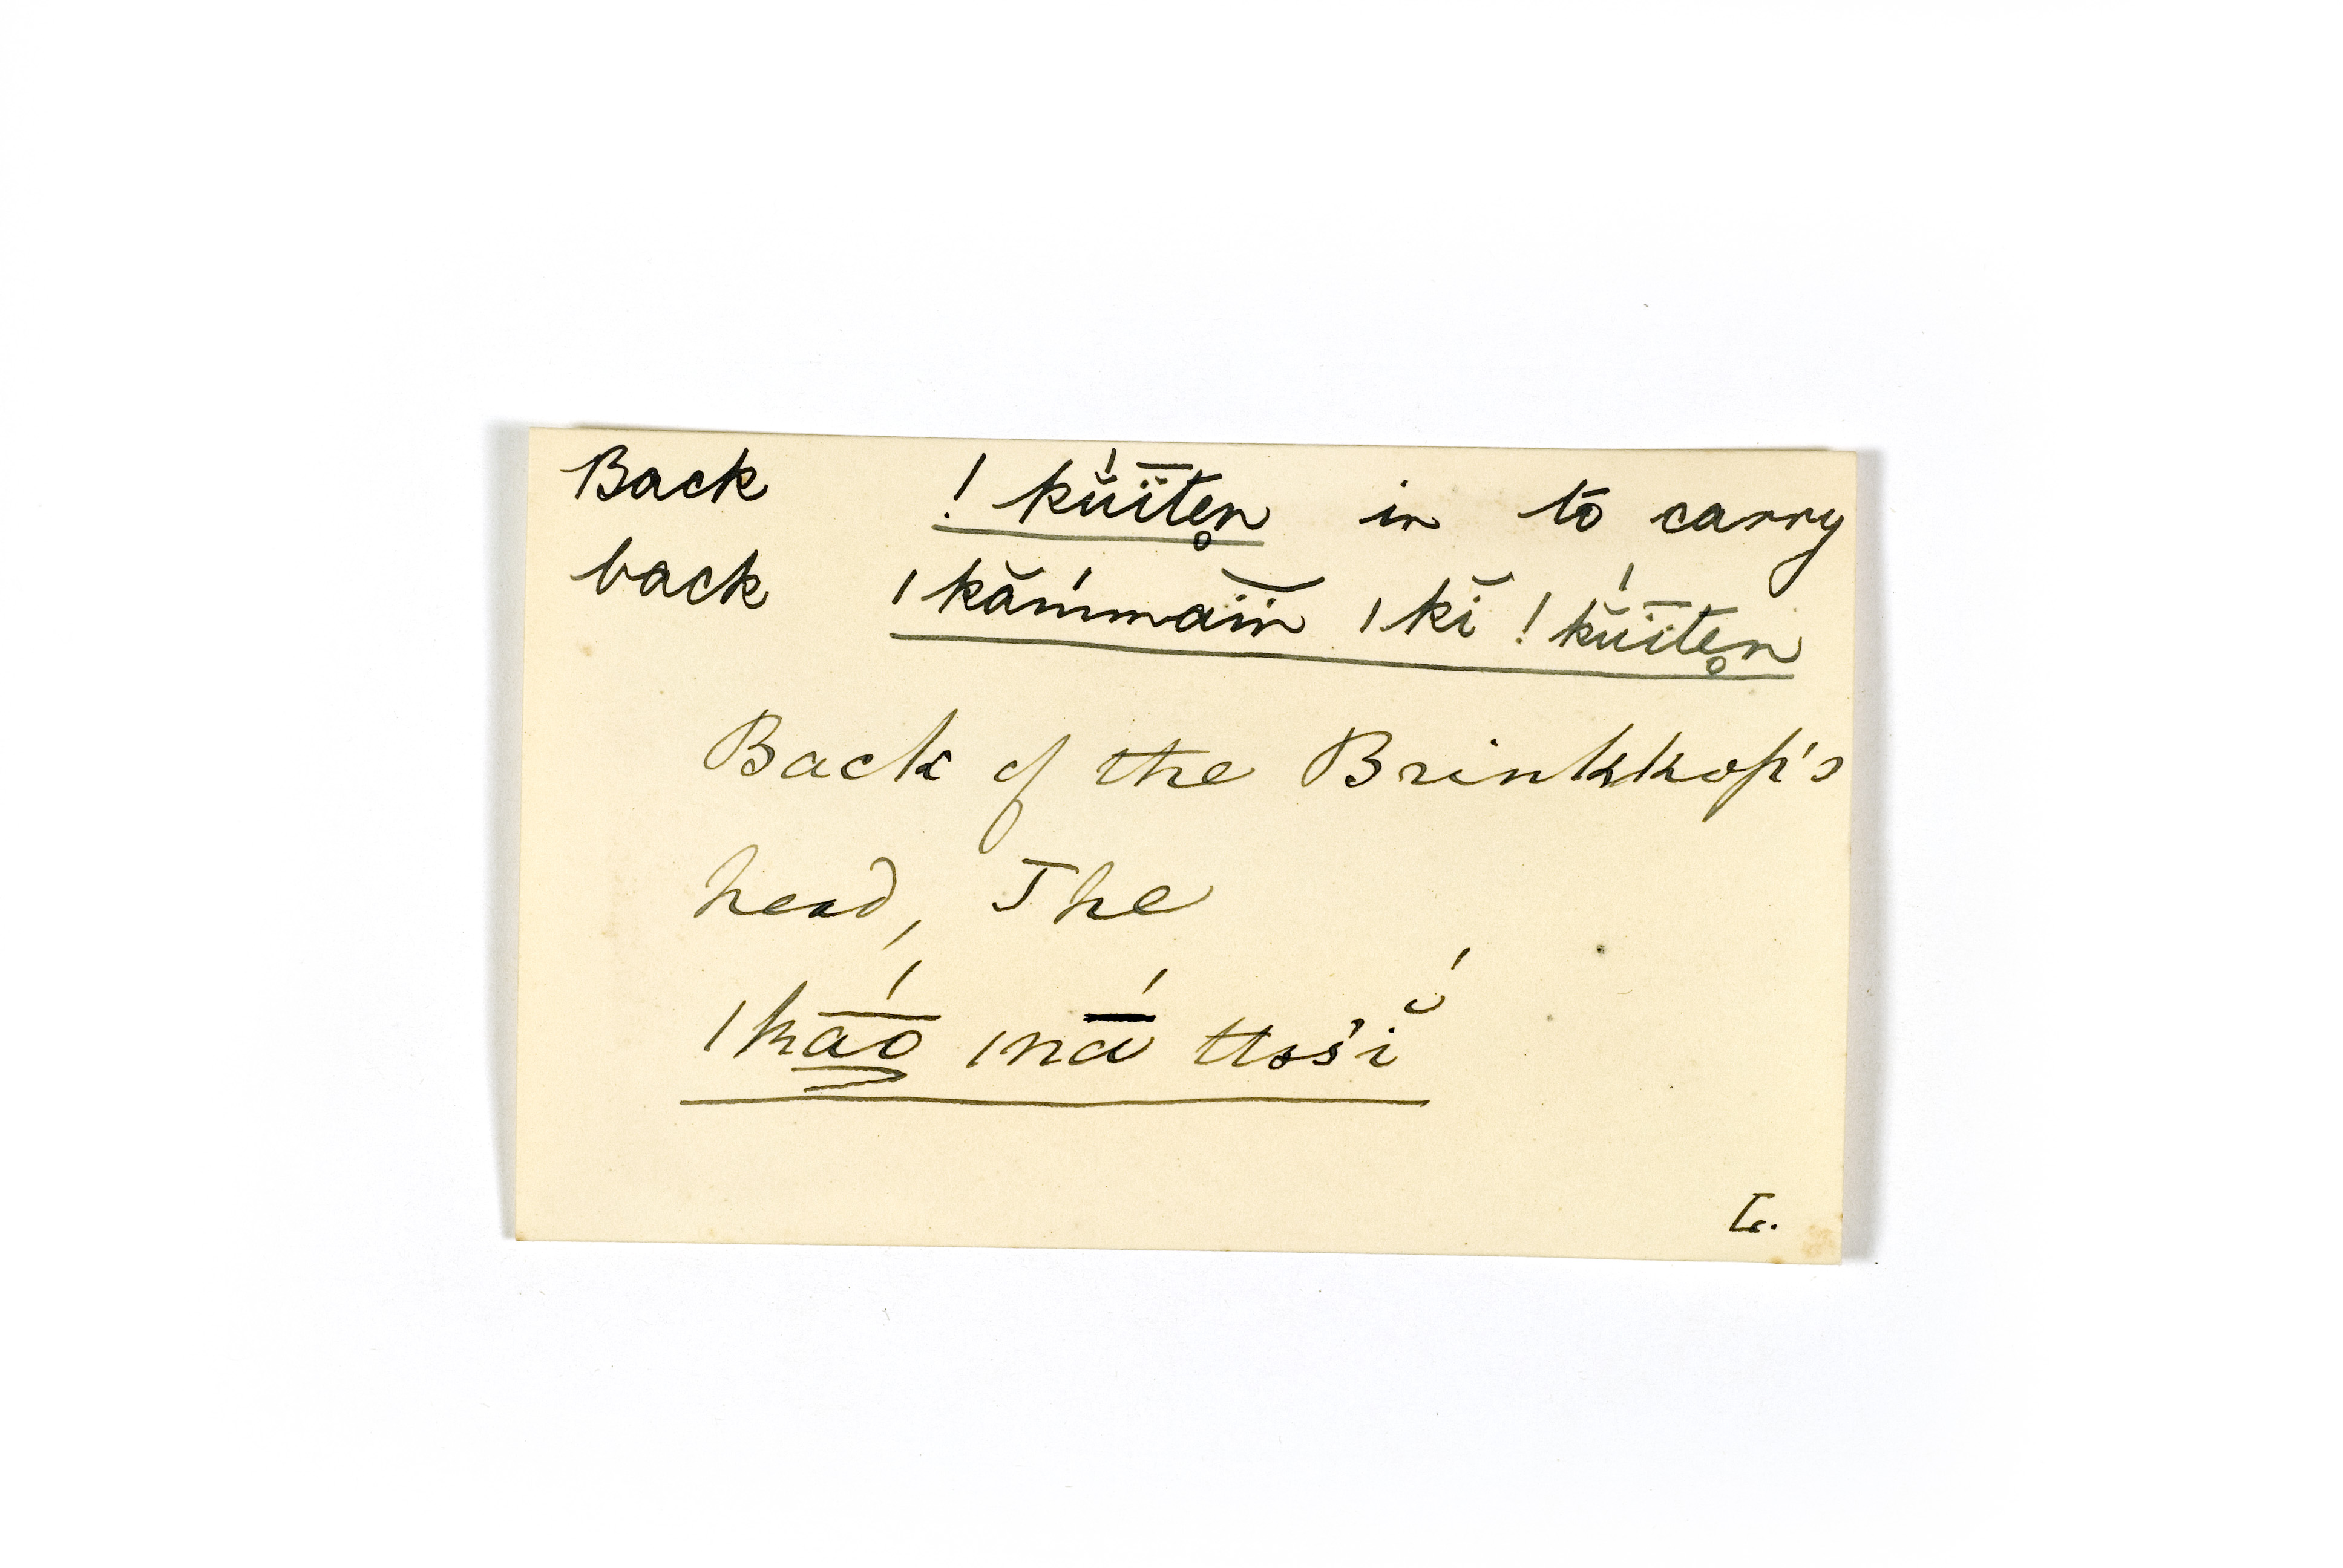 Back ! kŭ́ïten̥ in to carry
back ǀkắmmaĭn ǀkĭ !kŭ́ïten̥
Back of the Brinkkop's
head, The
ǀhā́o ǀnā́ ttss'ĭ́